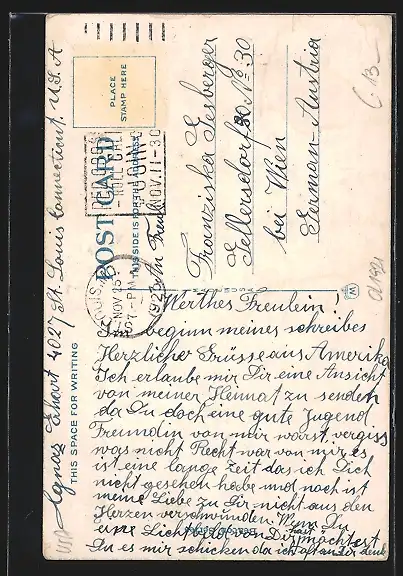 PLACE
STAMP HERE
POST CARD
THIS SIDE IS FOR THE ADDRESS
RED CROSS
ROLL CALL
JOIN
NOV. 11-30
NOV 15
7-PM
1923
Franziska Sesberger
Sellersdorf No 30
bei Wien
German-Austria
C 13
THIS SPACE FOR WRITING
Ignaz Ehart 4027 St. Louis Connecticut. U.S.A
Werthes Freulein!
Im beginn meines schreibes
Herzlicher Grüsse aus Amerika
Ich erlaube mir Dir eine Ansicht
von meiner Heimat zu senden
da Du doch eine gute Jugend
Freundin von mir warst, vergiss
was nicht Recht war von mir, es
ist eine lange Zeit das ich Dich
nicht gesehen habe und noch ist
meine Liebe zu Dir nicht aus den
Herzen verschwunden. Wenn Du
eine Lichtbild von Dir hast möchtest
Du es mir schicken da ich oft an Dir denk